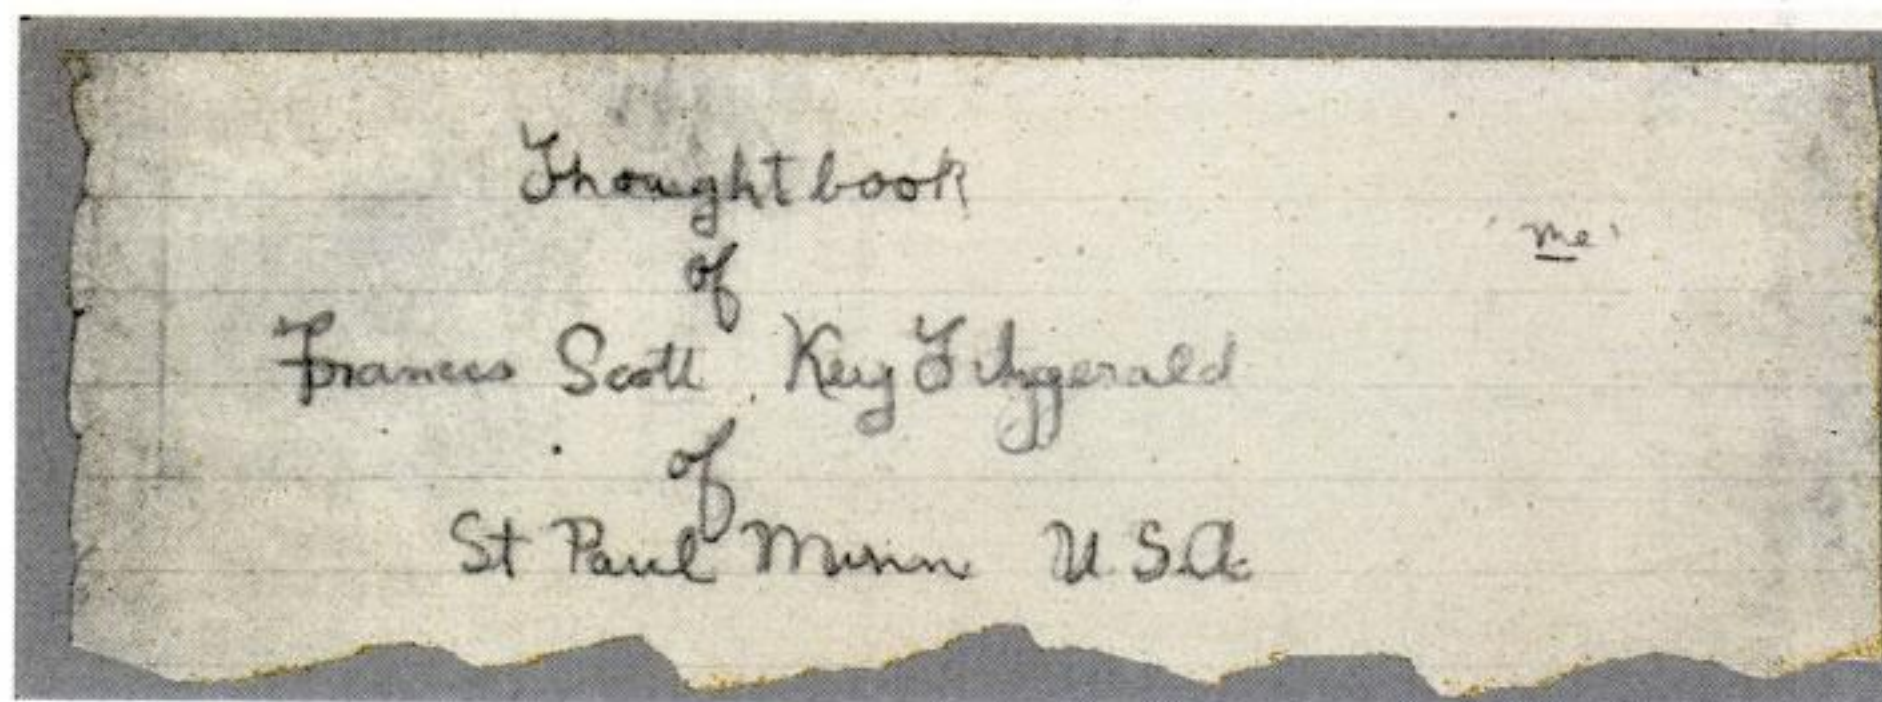 Thoughtbook
of
Francis Scott Key Fitzgerald
of
St Paul Minn U.S.A.
'me'